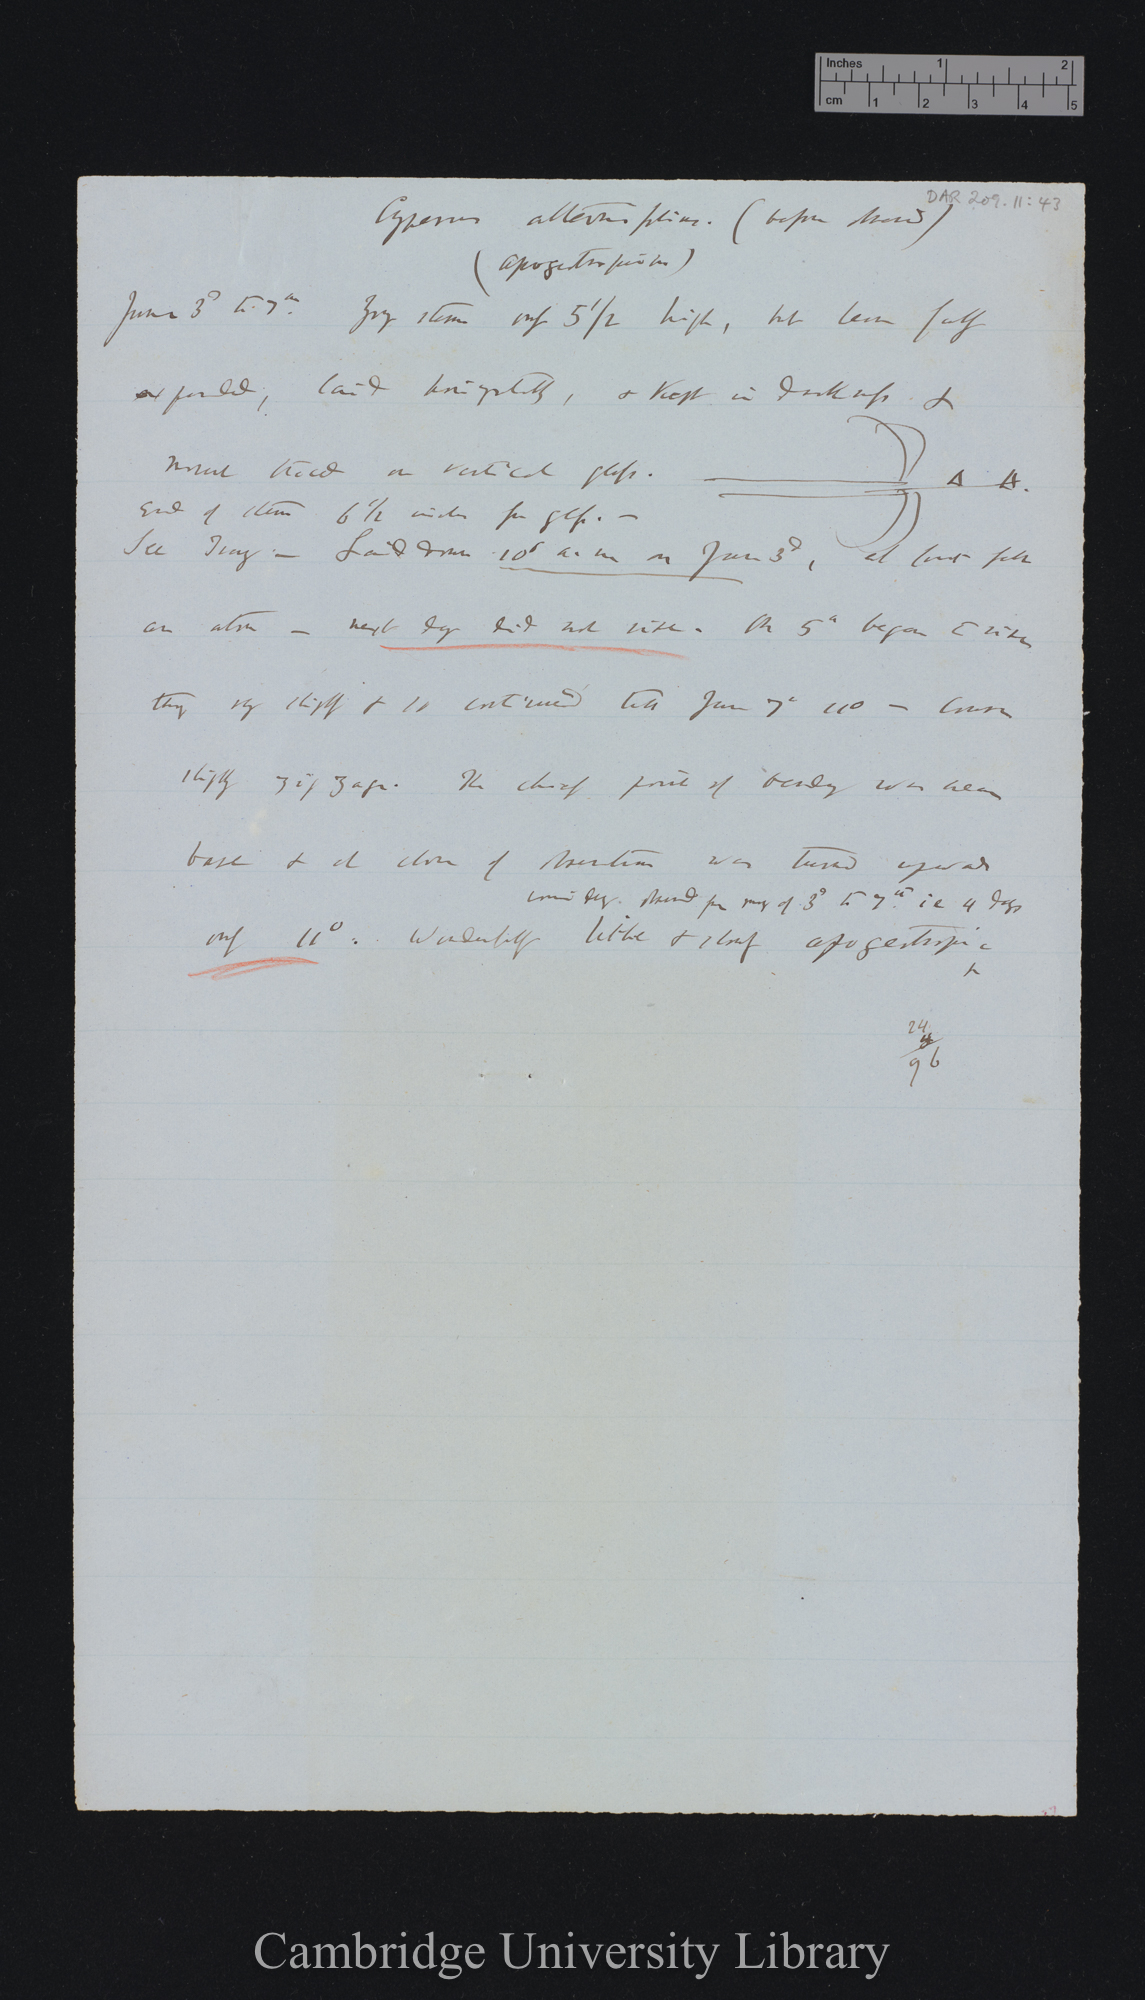 Inches 1 2
cm 1 2 3 4 5
DAR 209.11:43
Cyperus alternifolius. (before
(apogeotropism)
June 3d to 7th. Young stem only 5 1/2 high, but leaves fully
expanded, laid horizontally, & kept in dark cupb &
movement traced on vertical glass. A A.
End of stem 6 1/2 inches from glass. —
See Tracing — Laid down 10° a. m on June 3d, at first fell
an atom — next day did not rise. On 5th began to rise
very slightly & so continued till June 7th 11° — course
slightly zigzag. The chief point of bending was near
base & at close of observation was turned upwards
considering observed from mng of 3d to 7th. ie 4 days
only 11°. Wonderfully little & slow apogeotropic
24
4
96
Cambridge University Library